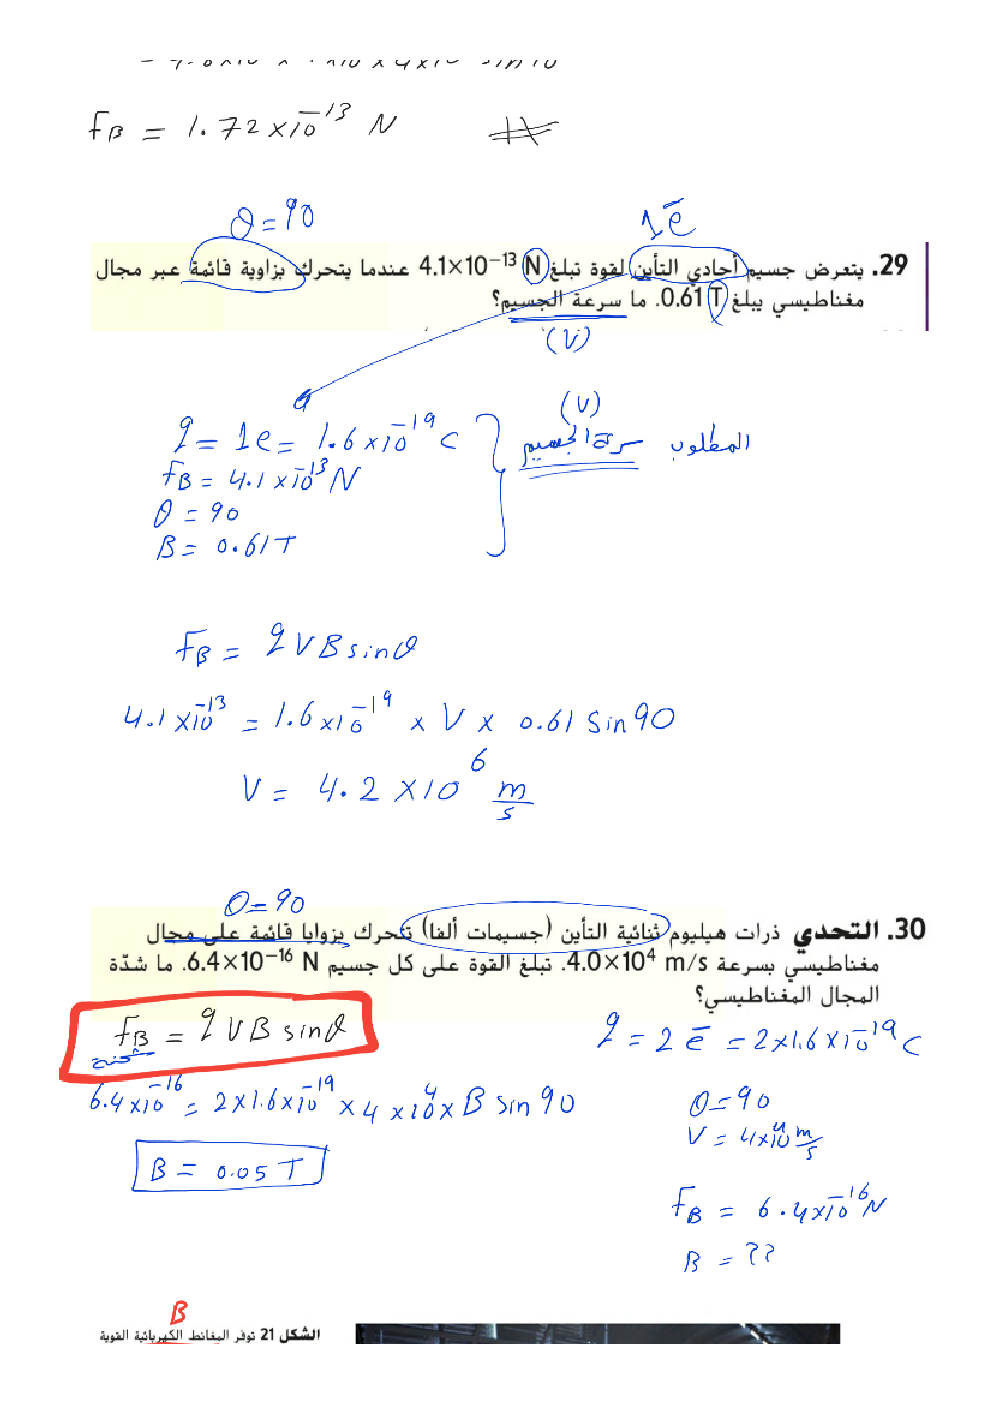 F_B = 1.72×10^-13 N
θ = 90
1e^-
29. يتعرض جسيم أحادي التأين لقوة تبلغ 4.1×10^-13 N عندما يتحرك بزاوية قائمة عبر مجال
مغناطيسي يبلغ 0.61 T. ما سرعة الجسيم؟
(V)
(V)
المطلوب سرعة الجسيم
q = 1e = 1.6×10^-19 C
F_B = 4.1×10^-13 N
θ = 90
B = 0.61T
F_B = q V B sinθ
4.1×10^-13 = 1.6×10^-19 × V × 0.61 sin 90
V = 4.2 × 10^6 m/s
θ = 90
30. التحدي ذرات هيليوم ثنائية التأين (جسيمات ألفا) تتحرك بزوايا قائمة على مجال
مغناطيسي بسرعة 4.0×10^4 m/s. تبلغ القوة على كل جسيم 6.4×10^-16 N. ما شدّة
المجال المغناطيسي؟
F_B = q V B sinθ
شحنة
q = 2e^- = 2×1.6×10^-19 C
6.4×10^-16 = 2×1.6×10^-19 × 4×10^4 × B sin 90
θ = 90
V = 4×10^4 m/s
B = 0.05 T
F_B = 6.4×10^-16 N
B = ??
B
الشكل 21 توفر المغانط الكهربائية القوية